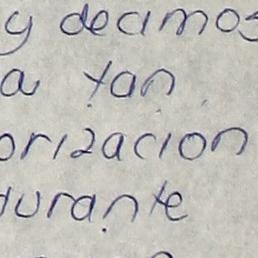 y decimos
a tan
orizacion
durante